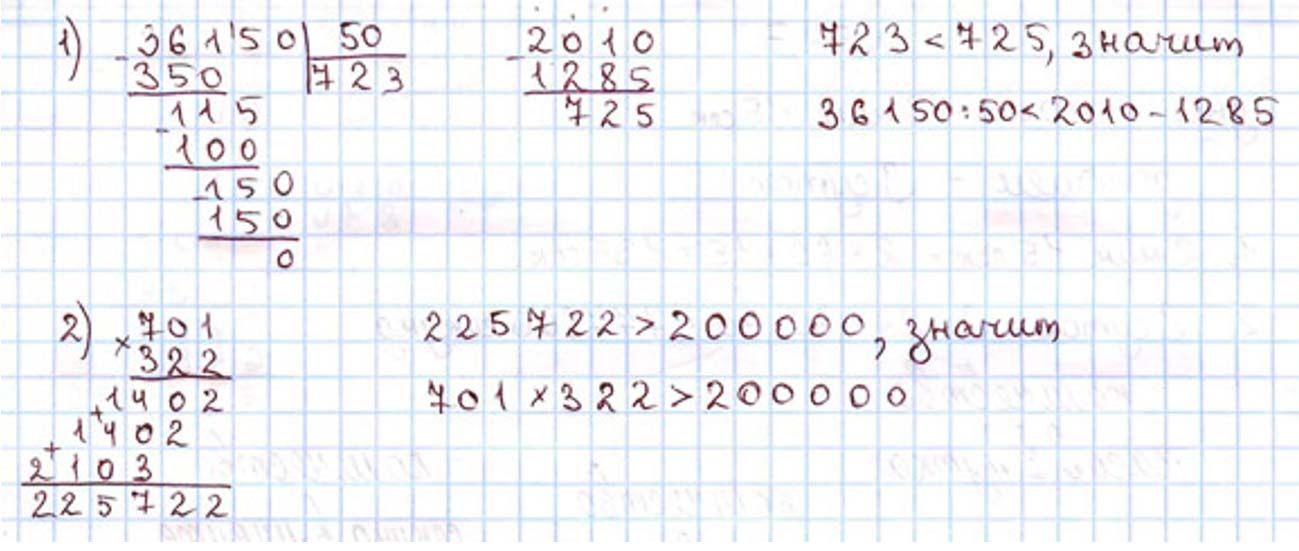 1) 36150 | 50   2010   723 < 725, значит
- 350 | 723   - 1285
115   725   36150:50<2010-1285
- 100
- 150
150
0
2) × 701   225722 > 200000, значит
322
1402   701 × 322 > 200000
+ 1402
+ 2103
225722